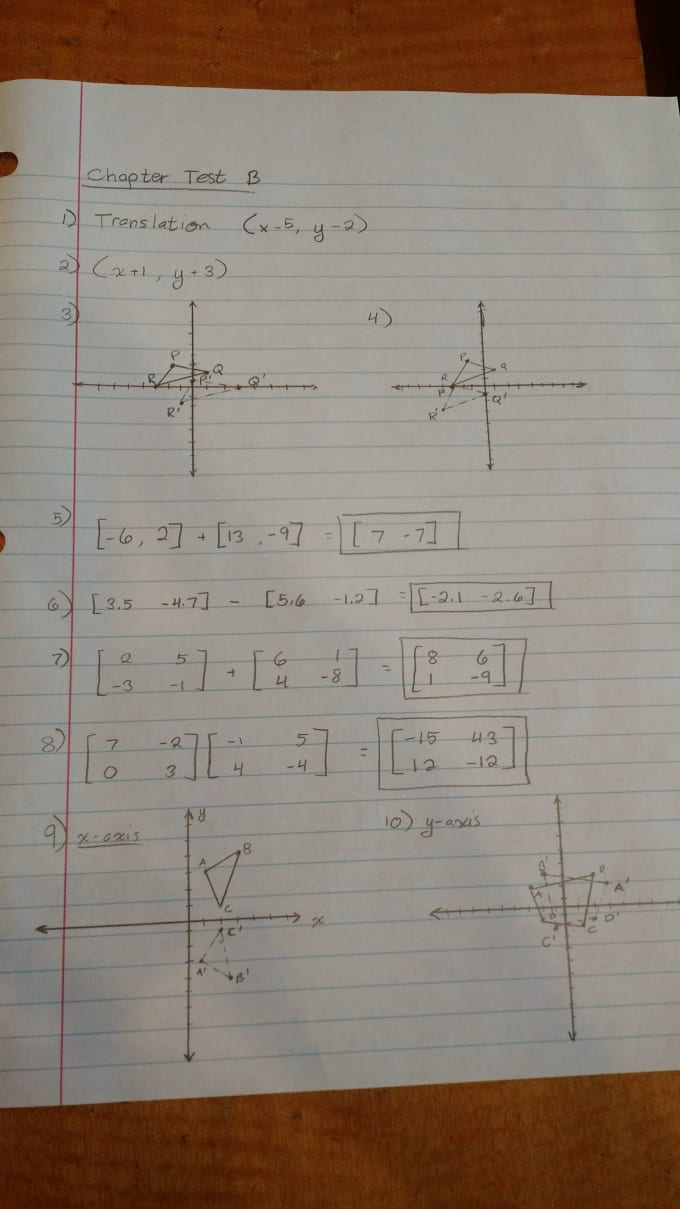 Chapter Test B
1) Translation (x-5, y-2)
2) (x+1, y+3)
3)
4)
P
Q
R
P'
Q'
R'
P
Q
R
P'
Q'
R'
5) [-6, 2] + [13, -9] = [7 -7]
6) [3.5 -4.7] - [5.6 -1.2] = [-2.1 -2.6]
7) [2 5] + [6 1] = [8 6]
[-3 -1] [4 -8] [1 -9]
8) [7 -2] [-1 5] = [-15 43]
[0 3] [4 -4] [12 -12]
9) x-axis
y
A
B
C
x
C'
A'
B'
10) y-axis
A
A'
D'
C
C'